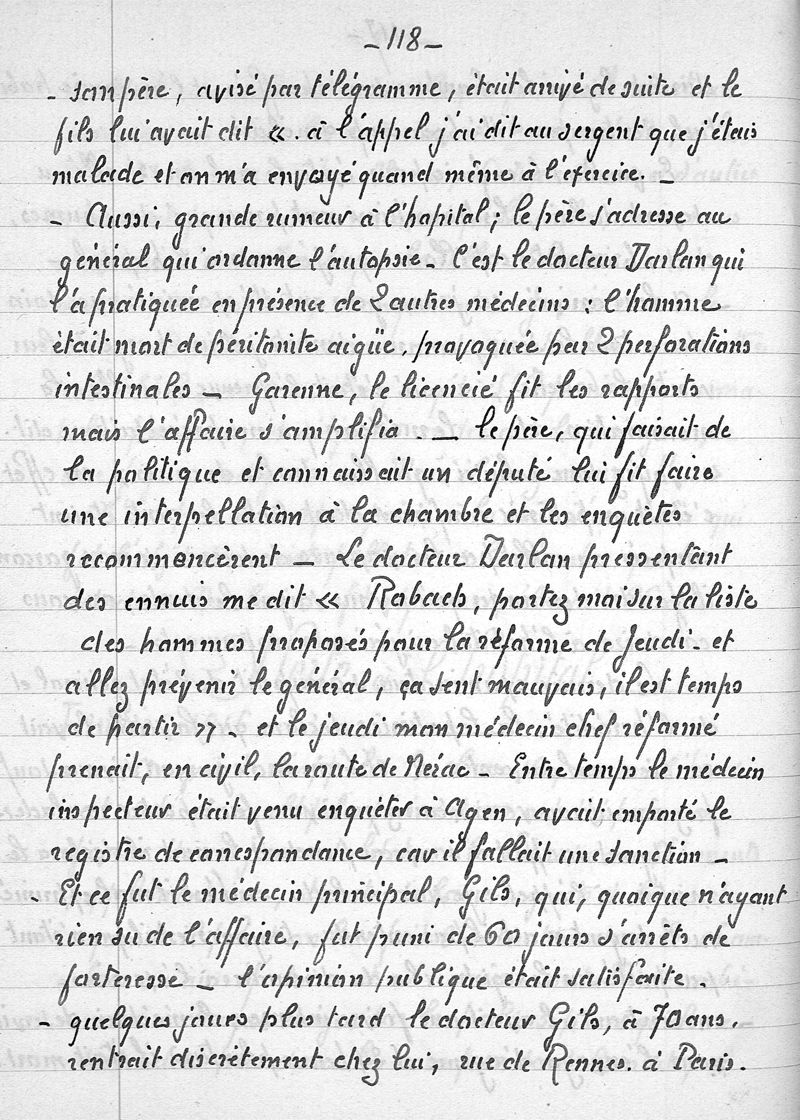 _ 118 _
- son père, avisé par télégramme, était arrivé de suite et le
fils lui avait dit «. à l'appel j'ai dit au sergent que j'étais
malade et on m'a envoyé quand même à l'exercice. _
- Aussi, grande rumeur à l'hopital ; le père s'adresse au
général qui ordonne l'autopsie - C'est le docteur Darlan qui
l'a pratiquée en présence de 2 autres médecins : l'homme
était mort de péritonite aigüe, provoquée par 2 perforations
intestinales _ Garenne, le licencié fit les rapports
mais l'affaire s'amplifia . _ le père, qui faisait de
la politique et connaissait un député lui fit faire
une interpellation à la chambre et les enquètes
recommencèrent _ Le docteur Darlan pressentant
des ennuis me dit « Robach, portez moi sur la liste
des hommes proposés pour la réforme de Jeudi - et
allez prévenir le général, ça sent mauvais, il est temps
de partir » - et le jeudi mon médecin chef réformé
prenait, en civil, la route de Nérac - Entre temps le médecin
inspecteur était venu enquèter à Agen, avait emporté le
registre de correspondance, car il fallait une sanction _
- Et ce fut le médecin principal, Gils, qui, quoique n'ayant
rien su de l'affaire, fut puni de 60 jours d'arrêts de
forteresse _ l'opinion publique était satisfaite.
- quelques jours plus tard le docteur Gils, à 70 ans,
rentrait discrètement chez lui, rue de Rennes. à Paris.